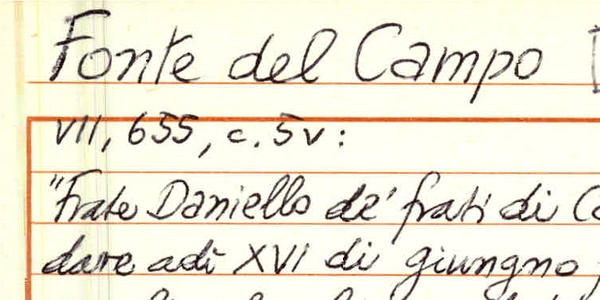 Fonte del Campo
VII, 655, c. 5v:
"Frate Daniello de' frati di
dare adì XVI di giungno